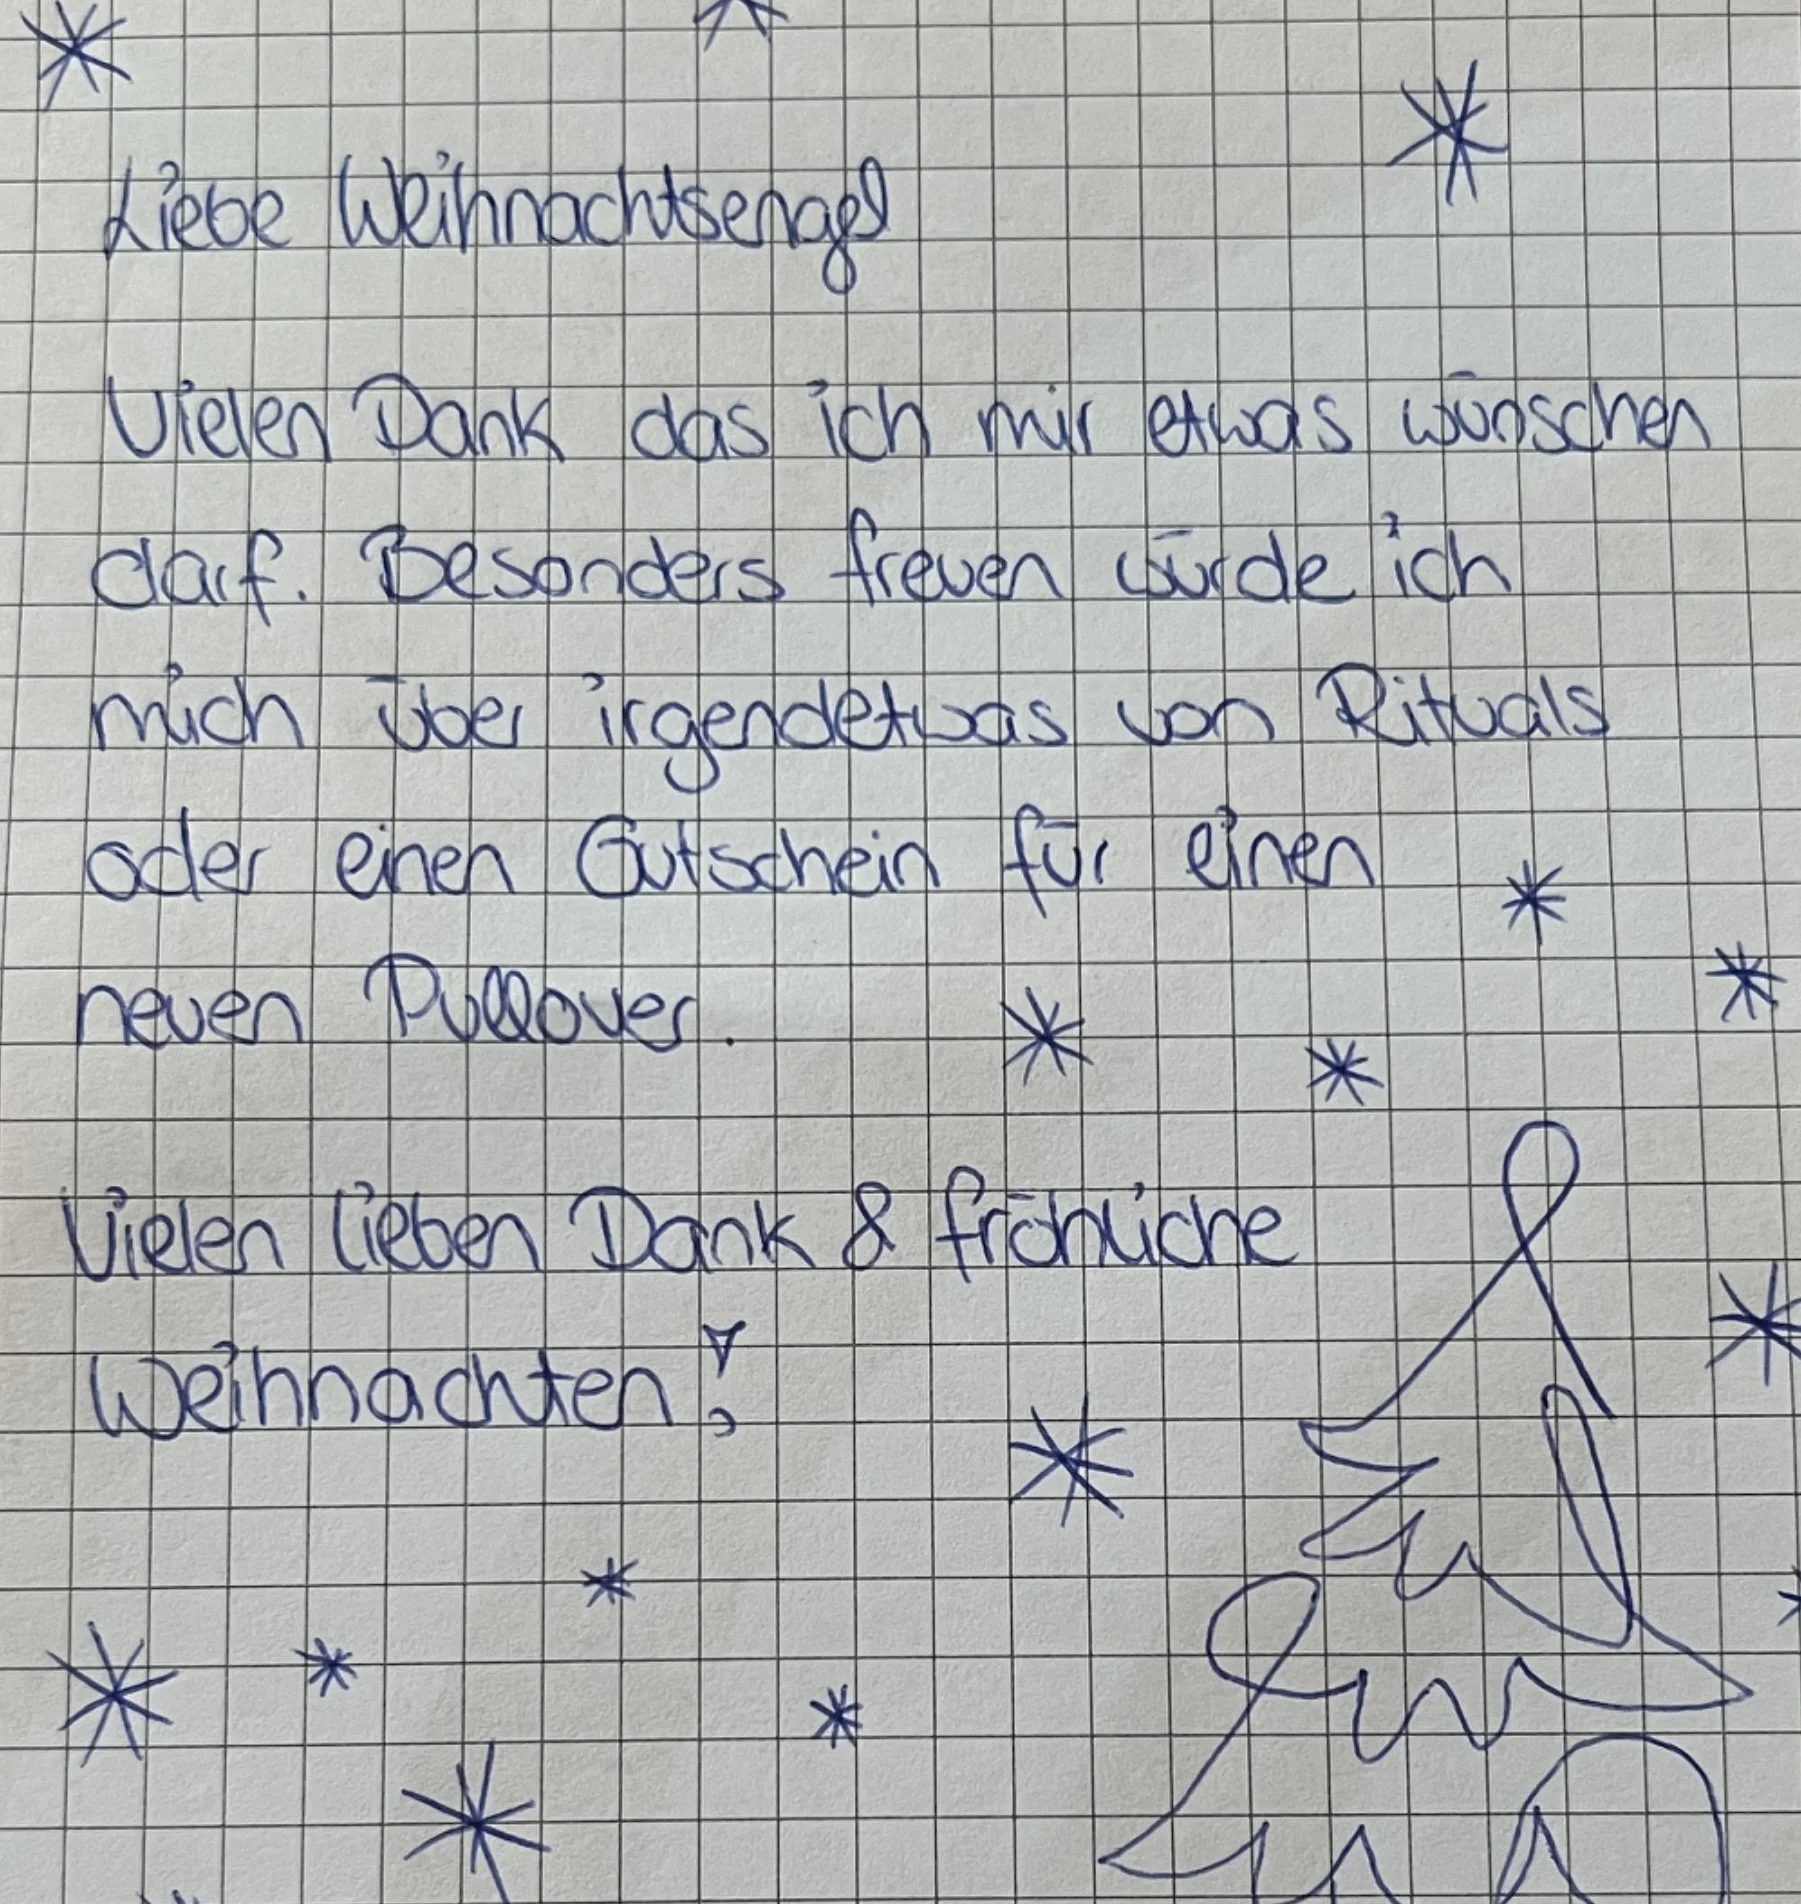 Liebe Weihnachtsengel
Vielen Dank das ich mir etwas wünschen
darf. Besonders freuen würde ich
mich über irgendetwas von Rituals
oder einen Gutschein für einen
neuen Pullover.
Vielen lieben Dank & fröhliche
Weihnachten!